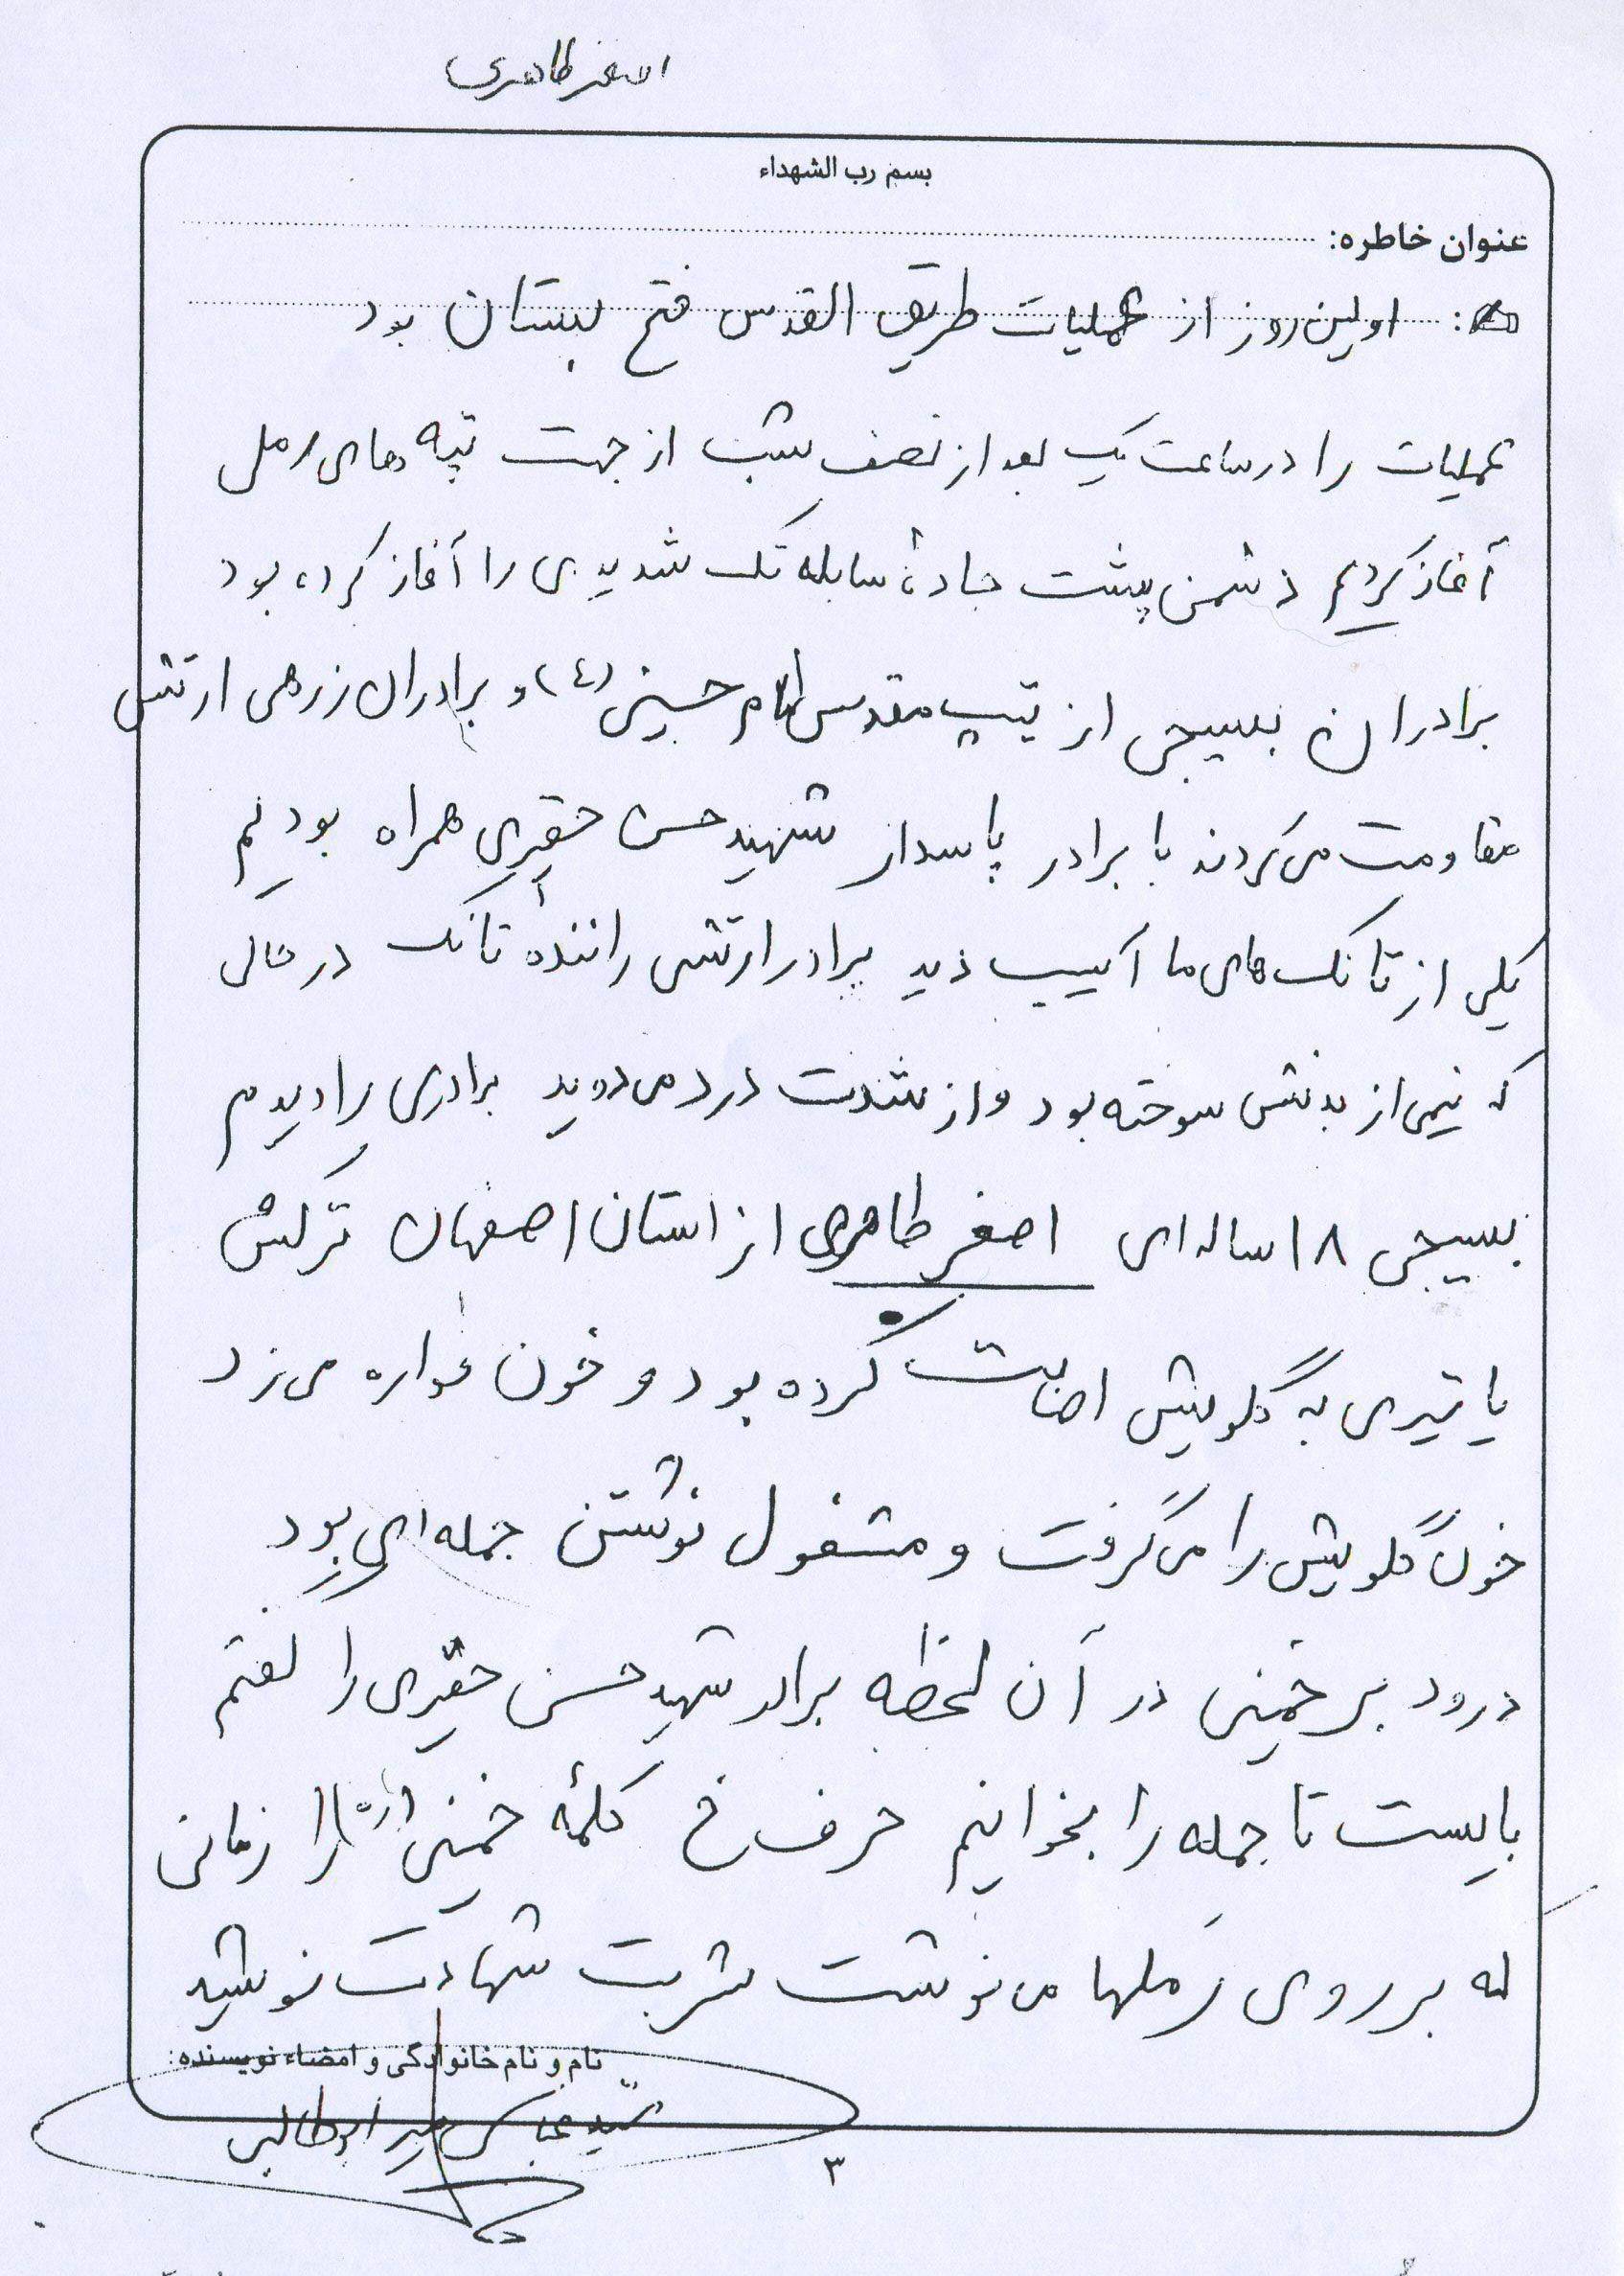 اصغر طاهری
بسم رب الشهداء
عنوان خاطره:
اولین روز از عملیات طریق القدس فتح بستان بود
عملیات را در ساعت یک بعد از نصف شب از جهت تپه های رملی
آغاز کردیم دشمن پشت جادهٔ سابله تک شدیدی را آغاز کرده بود
برادران بسیجی از تیپ مقدس امام حسین (ع) و برادران زرهی ارتش
مقاومت می کردند با برادر پاسدار شهید حسن حقیری همراه بودیم
یکی از تانک های ما آسیب دید برادر ارتشی رانندهٔ تانک در حالی
که نیمی از بدنش سوخته بود و از شدت درد می دوید برادری را دیدیم
بسیجی ۱۸ ساله ای اصغر طاهری از استان اصفهان ترکش
یا تیری به گلویش اصابت کرده بود و خون فواره می زد
خون گلویش را می گرفت و مشغول نوشتن جمله ای بود
درود بر خمینی در آن لحظه برادر شهید حسن حقیری را گفتم
بایست تا جمله را بخوانیم حرف خ کلمهٔ خمینی را زمانی
که بر روی رملها می نوشت شربت شهادت نوشید
نام و نام خانوادگی و امضاء نویسنده:
سید عباس میر ابوطالبی
۳